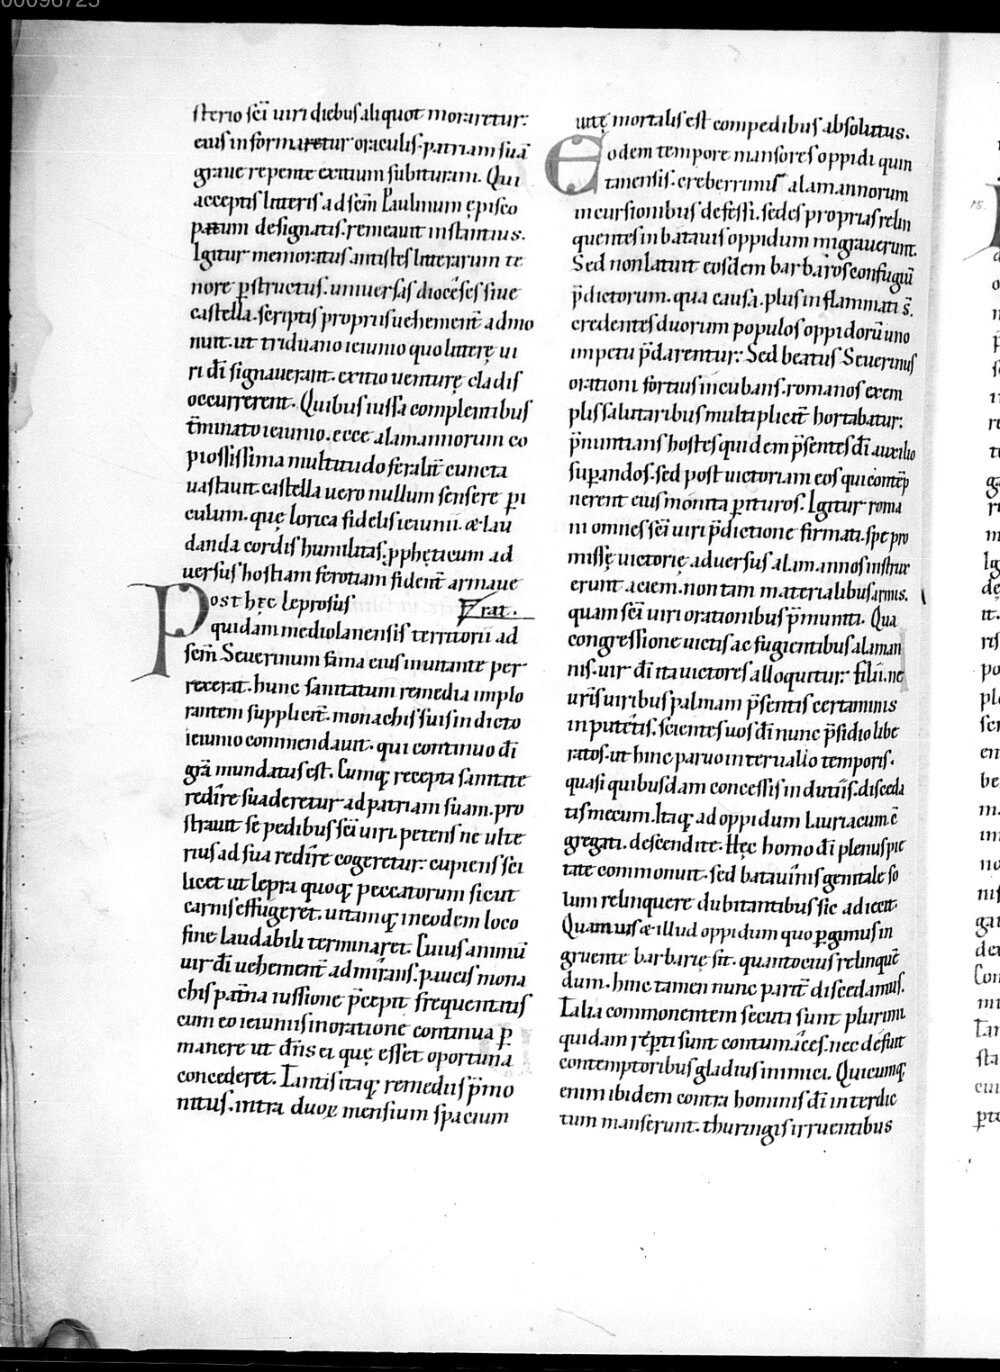 00096725
sterio sc̄i uiri diebus aliquot moraretur:
eius informaretur oraculis. patriam suā
graue repente exitium subituram. Qui
acceptis litteris ad sc̄m Paulinum episco
patum designatis. remeauit instantius.
Igitur memoratus antistes litterarum te
nore p̄structus. uniuersas dioceses siue
castella. scriptis propriis uehement̄ admo
nuit. ut triduano ieiunio quo litterę ui
ri dī signauerant. exitio uenturę cladis
occurrerent. Quibus iussa complentibus
t̄minato ieiunio. ecce alamannorum co
piosissima multitudo feralit̄ cuncta
uastauit. castella uero nullum sensere pi
culum. quę lorica fidelis ieiunii. & lau
danda cordis humilitas. p̱phęticum ad
uersus hostiam ferotiam fident̄ armaue
Post hęc leprosus rat.
quidam mediolanensis territorii ad
sc̄m Seuerinum fama eius inuitante per
rexerat. hunc sanitatum remedia implo
rantem supplicit̄. monachis suis indicto
ieiunio commendauit. qui continuo dī
grā mundatus est. Cumq; recepta sanitate
redire suaderetur ad patriam suam. pro
strauit se pedibus sc̄i uiri. petens ne ulte
rius ad sua redire cogeretur. cupiens sci
licet ut lepra quoq; peccatorum sicut
carnis effugeret. uitamq; in eodem loco
fine laudabili terminaret. Cuius animū
uir dī uehement̄ admirans. paucis mona
chis pat̄na iussione p̄cepit frequentatis
cum eo ieiuniis in oratione continua p̱
manere ut dn̄s ei quę esset oportuna
concederet. Tantis itaq; remediis p̄mo
nitus. intra duoꝝ mensium spacium
uitę mortalis est compedibus absolutus.
Eodem tempore mansores oppidi quin
tanensis. creberrimis alamannorum
incursionibus defessi. sedes proprias relin
quentes in batauis oppidum migrauerunt.
Sed non latuit eosdem barbaros confugiū
p̄dictorum. qua causa. plus inflammati s̄.
credentes duorum populos oppidorū uno
impetu p̄darentur: Sed beatus Seuerinus
orationi fortius incubans. romanos exem
plis salutaribus multiplicit̄ hortabatur:
p̄nuntians hostes quidem p̄sentes dī auxilio
sup̱andos. sed post uictoriam eos qui contēp
nerent eius monita p̱ituros. Igitur roma
ni omnes sc̄i uiri p̄dictione firmati. spe pro
missę uictorię. aduersus alamannos instrux
erunt aciem. non tam materialibus armis.
quam sc̄i uiri orationibus p̄muniti. Qua
congressione uictis ac fugientibus alaman
nis. uir dī ita uictores alloquitur: filii. ne
uris uiribus palmam p̄sentis certaminis
inputetis. scientes uos dī nunc p̄sidio libe
ratos. ut hinc paruo interuallo temporis.
quasi quibusdam concessis indutiis. disceda
tis mecum. Itaq; ad oppidum lauriacum. c̄
gregati. descendite. Hęc homo dī plenus pie
tate commonuit. sed batauinis genitale so
lum relinquere dubitantibus sic adiecit.
Quamuis & illud oppidum quo p̱gimus in
gruente barbarię sit. quantocius relinquē
dum. hinc tamen nunc parit̄ discedamus.
Talia commonentem secuti sunt plurimi
quidam rep̱ti sunt contumaces. nec defuit
contemptoribus gladius inimici. Quicumq;
enim ibidem contra hominis dī interdic
tum manserunt. thuringis irruentibus